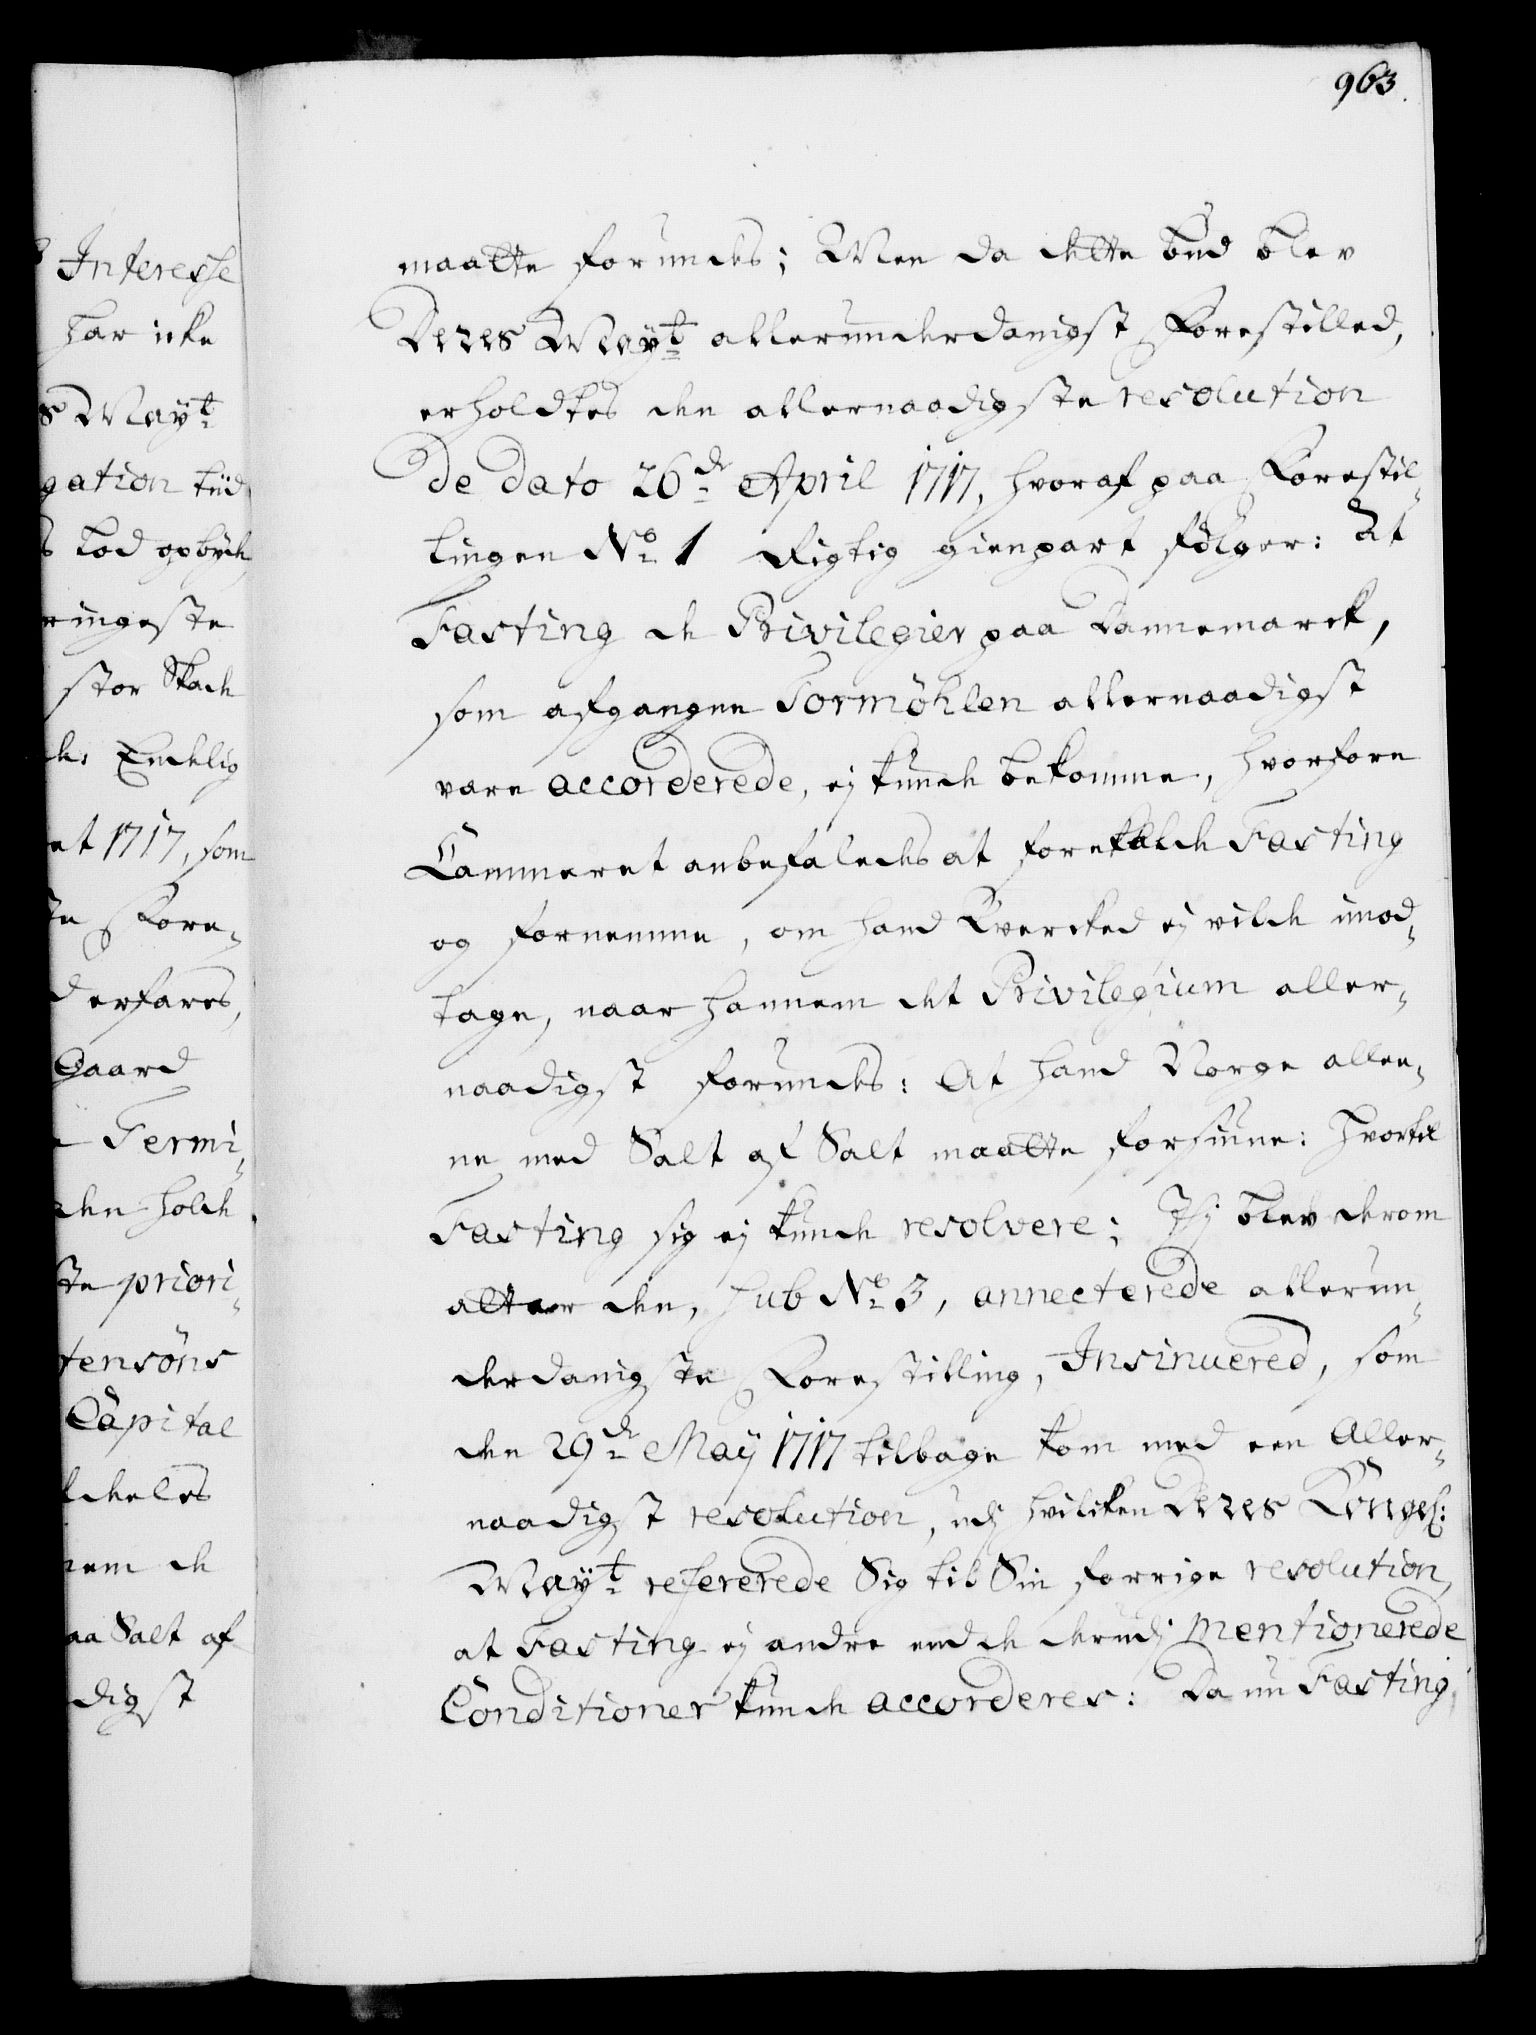 963.
maatte forundes; Men da dette bud blev
Deres Mayt allerunderdanigst Forestilled,
erholdtes den allernaadigste resolution
De Dato 26de April 1717, hvoraf paa Forestil-
lingen No 1 Rigtig gienpart følger: At
Fasting de Privilegier paa Dannemarck,
som afgangne Tormöhlen allernaadigst
vare accorderede, ej kunde bekomme, hvorfore
Cammeret anbefaledes at forekalde Fasting
og fornemme, om hand Verched ej vilde imod-
tage, naar hannem det Privilegium aller-
naadigst forundes: At hand Norge allee-
ne med Salt af Salt maatte forsiune: Hvortil
Fasting sig ej kunde resolvere; Thj blev derom
atter den, sub No 3, annecterede allerun-
derdanigste Forestilling, Insinuered, som
den 29de Maÿ 1717 tilbage kom med een Aller-
naadigst resolution, udj hvilcken Deres Kongel:
Mayt refererede Sig til Sin forrige resolution,
at Fasting ej andre end de derudj mentionerede
Conditioner kunde accorderes: Da nu Fasting,
Interesse
har icke
s Mayt
gation tiid
s lod opbyde
ringeste
stor Skade
de. Endelig
et 1717, som
te Fore-
d erfares,
Gaard
Termi-
den holde
ste priori-
tensöns
Capital
deeles
nem de
aa Salt af
digst